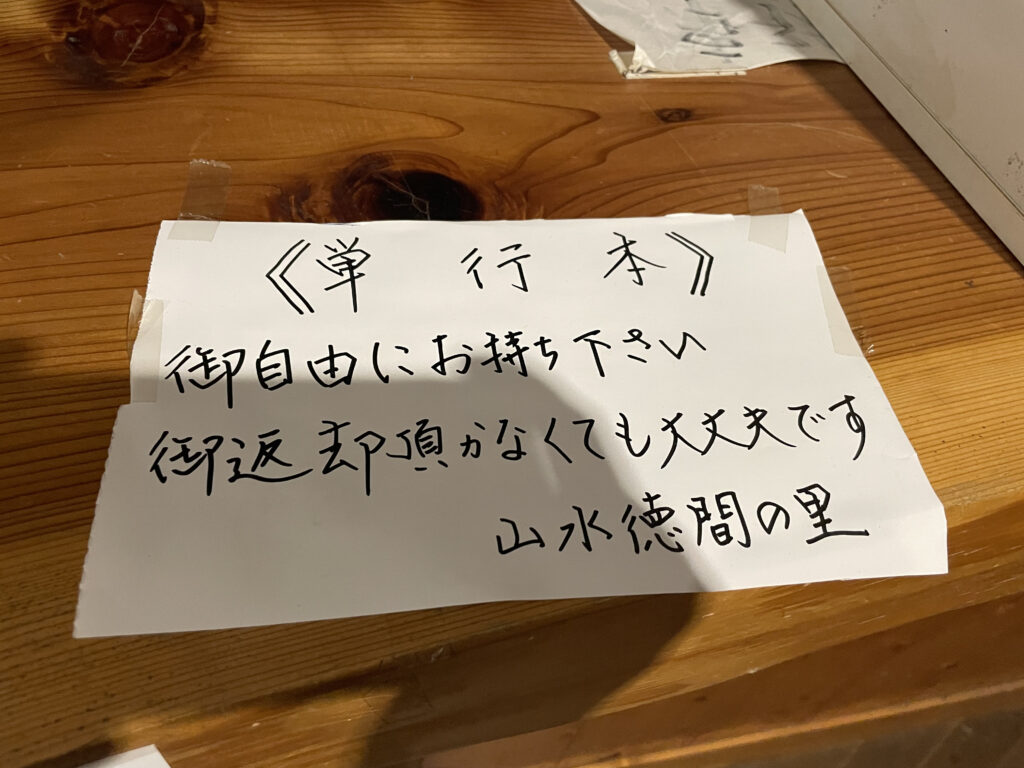 《単行本》
御自由にお持ち下さい
御返却頂かなくても大丈夫です
山水徳間の里